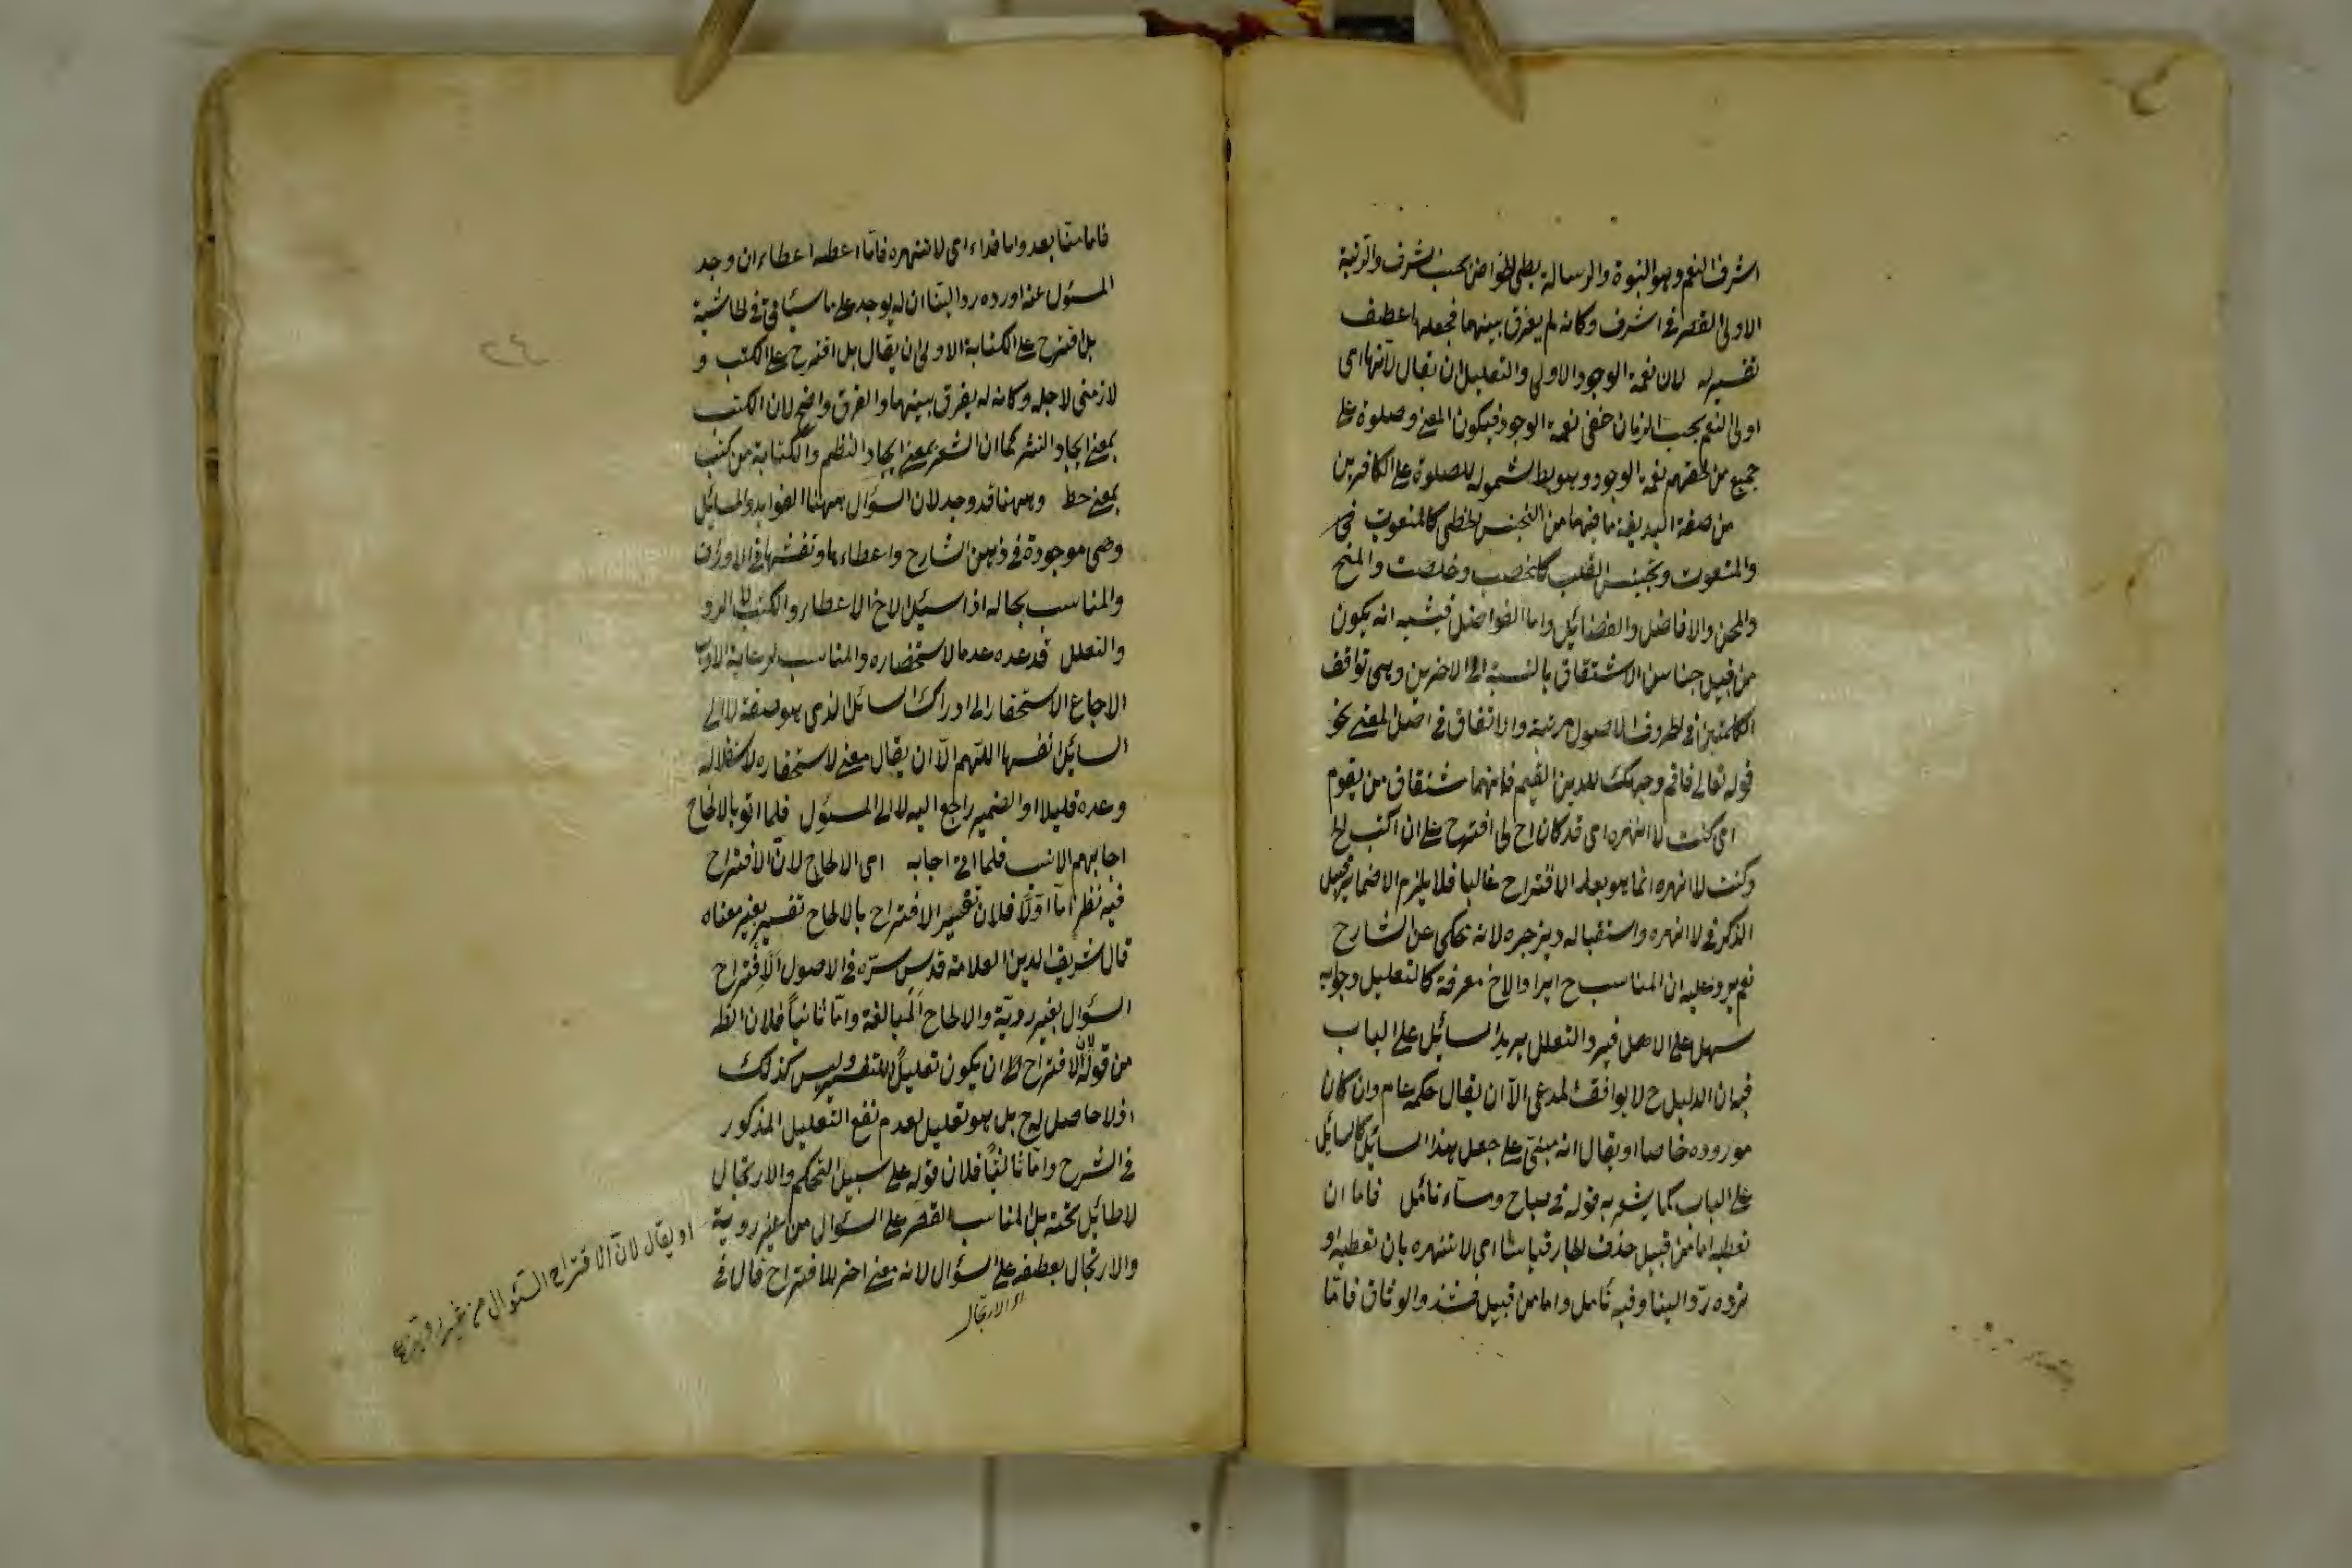 اشرف النعم وهو النبوة والرسالة يعطى الخواض بحسب الشرف والرتبة
الاولى القصر في اشرف وكانه لم يفرق بينهما فجعلها عطف
تفسير له لان نعمة الوجود الاولى والتعليل ان يقال لانها اى
اولى النعم بحسب الزمان خفى نعمة الوجود فيكون المعنى وصلوة على
جميع من لحقتهم نعمة الوجود وهو بط لشموله للصلوة على الكافرين
من صفة البديعة ما فيهما من التجنيس الخطى كالمنعوت
والمنعوت وتجنيس القلب كالخصب وخلصت والمنح
والمحن والافاضل والفضائل واما الفواضل فيشبه انه يكون
من قبيل جناس الاشتقاق بالنسبة الى الاخرين وهى توافق
الكلمتين في الحروف الاصول مرتبة والاتفاق في اصل المعنى نحو
قوله تعالى فاقم وجهك للدين القيم فانهما مشتقان من يقوم
اى كنت لا انهره اى قد كان اح لى اقترح على ان اكتب الخ
وكنت لا انهره انما هو بعد الاقتراح غالبا فلا يلزم الاضمار قبيل
الذكر في لا انهره واستقباله ويزجره لانه يحكى عن الشارح
نعم يرد عليه ان المناسب ح ايراد الاخ معرفة كالتعليل وجوابه
سهل على الاصل فيرد التعلل يريد السائل على الباب
فيه ان الدليل ح لا يوافق المدعى الا ان يقال حكمه عام وان كان
موروده خاصا او يقال انه مبنى على جعل هذا السائل كالسائل
على الباب كما يشعر به قوله في صباح ومساء تأمل فاما ان
تعطيه اما من قبيل حذف الجار قياسا اى لا تنهره بان تعطيه او
ترده ردا لينا وفيه تأمل واما من قبيل فشدوا الوثاق فاما
فاما منا بعد واما فداء اى لا تنهره فاما اعطه اعطاء ان وجد
المسئول عنه او رده ردا لينا ان لم يوجد على ما سياتى في الحاشية
بل اقترح على الكتابة الاولى ان يقال بل اقترح على الكتب و
لازمنى لاجله وكانه لم يفرق بينهما والفرق واضح لان الكتب
بمعنى ايجاد النثر كما ان الشعر بمعنى ايجاد النظم والكتابة من كتب
بمعنى خط وههنا قد وجد لان السؤال ههنا الفوايد والمسائل
وهى موجودة في ذهن الشارح واعطاءها ونقشها في الاوراق
والمناسب بحاله اذا سئل الاخ الاعطاء والكتب لا الرد
والتعلل قد عده عدما لاستحضاره والمناسب لرعاية الادب
الارجاع الاستحقار الى ادراك السائل الذى هو صفته لا الى
السائل نفسه اللهم الا ان يقال معنى لاستحقاره لاستقلاله
وعده قليلا او الضمير راجع اليه لا الى المسئول فلما اتو بالالحاح
اجابهم الانسب فلما اتى اجابه اى الالحاح لان الاقتراح
فيه نظر اما اولا فلان تفسير الاقتراح بالالحاح تفسير بغير معناه
قال شريف الدين العلامة قدس سره في الاصول الاقتراح
السؤال بغير روية والالحاح المبالغة واما ثانيا فلان الظ
من قوله لان الاقتراح الخ ان يكون تعليلا للتفسير وليس كذلك
اذ لا حاصل له ح بل هو تعليل لعدم نفع التعليل المذكور
في الشرح واما ثالثا فلان قوله على سبيل التحكم والارتجال
لا طائل تحته بل المناسب القصر على السؤال من غير روية
والارتجال بعطفه على السؤال لانه معنى اخر للاقتراح قال في
او الارتجال
او يقال لان الاقتراح السئوال من غير روية